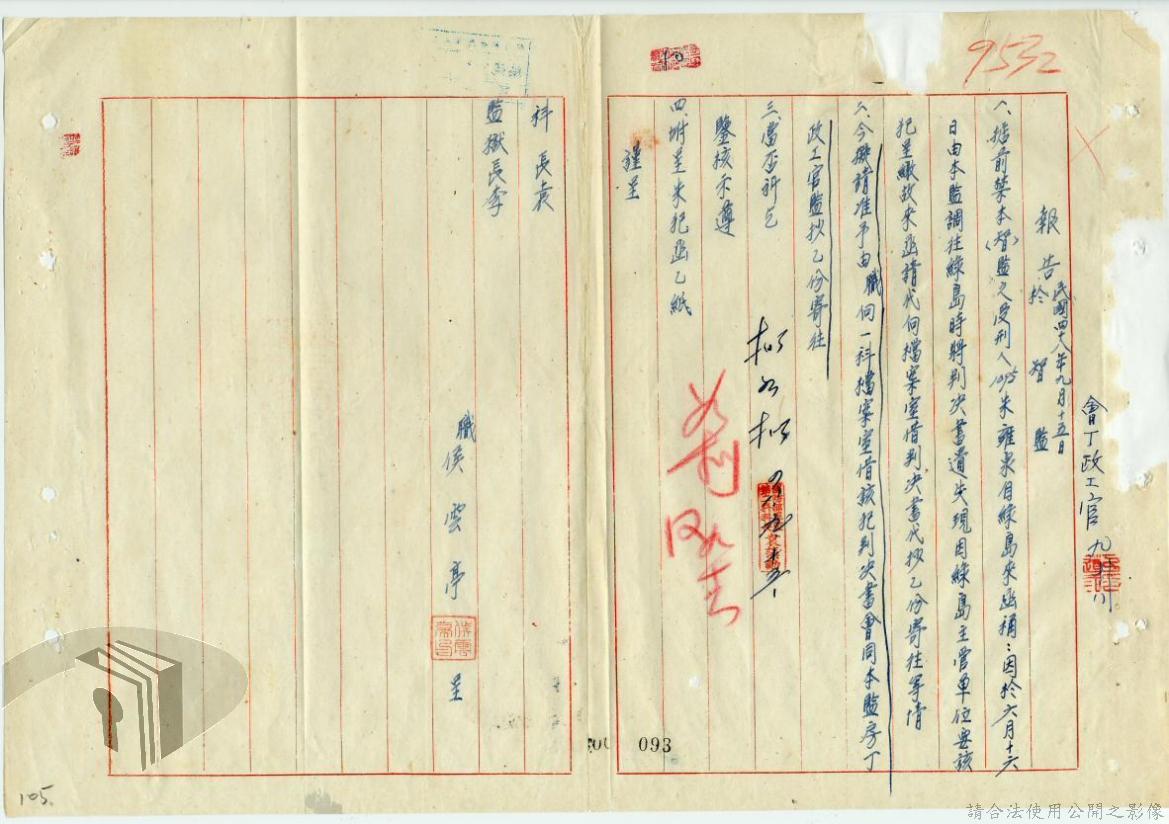 9532
報告 民國四十八年九月十五日
於智監
會丁政工官
一、據前禁本(智)監之受刑人1095朱雍泉自綠島來函稱：因於六月十六
日由本監調往綠島時將判決書遺失現因綠島主管單位要該
犯呈繳故來函請代向檔案室借判決書代抄乙份寄往等情
二、今擬請准予由職向一科檔案室借該犯判決書會同本監房丁
政工官監抄乙份寄往
三、當否祈乞
鑒核示遵
四、附呈朱犯函乙紙
謹呈
科長袁
監獄長李
職侯雲亭呈
擬如擬
093
105.
請合法使用公開之影像